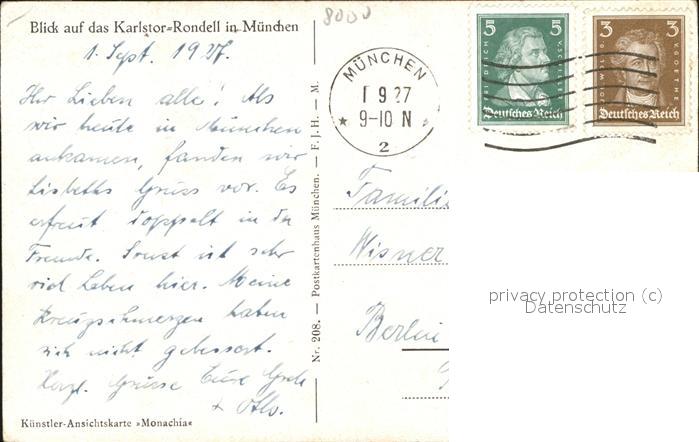 Blick auf das Karlstor-Rondell in München
8000
1. Sept. 1927.
Ihr Lieben alle! Als
wir heute in München
ankamen, fanden wir
Lisbeths Gruss vor. Es
erfreut doppelt in der
Fremde. Sonst ist sehr
viel Leben hier. Meine
Kreuzschmerzen haben
sich nicht gebessert.
Herzl. Grüsse Eure Grete
+ Otto.
Künstler-Ansichtskarte »Monachia«
Nr. 208. — Postkartenhaus München. — F. J. H. — M.
MÜNCHEN
1 9 27
9-10 N
* 2 *
5 5
FRIEDRICH V. SCHILLER
Deutsches Reich
3 3
J. W. V. GOETHE
Deutsches Reich
Familie
Wisner
Berlin
privacy protection (c)
Datenschutz